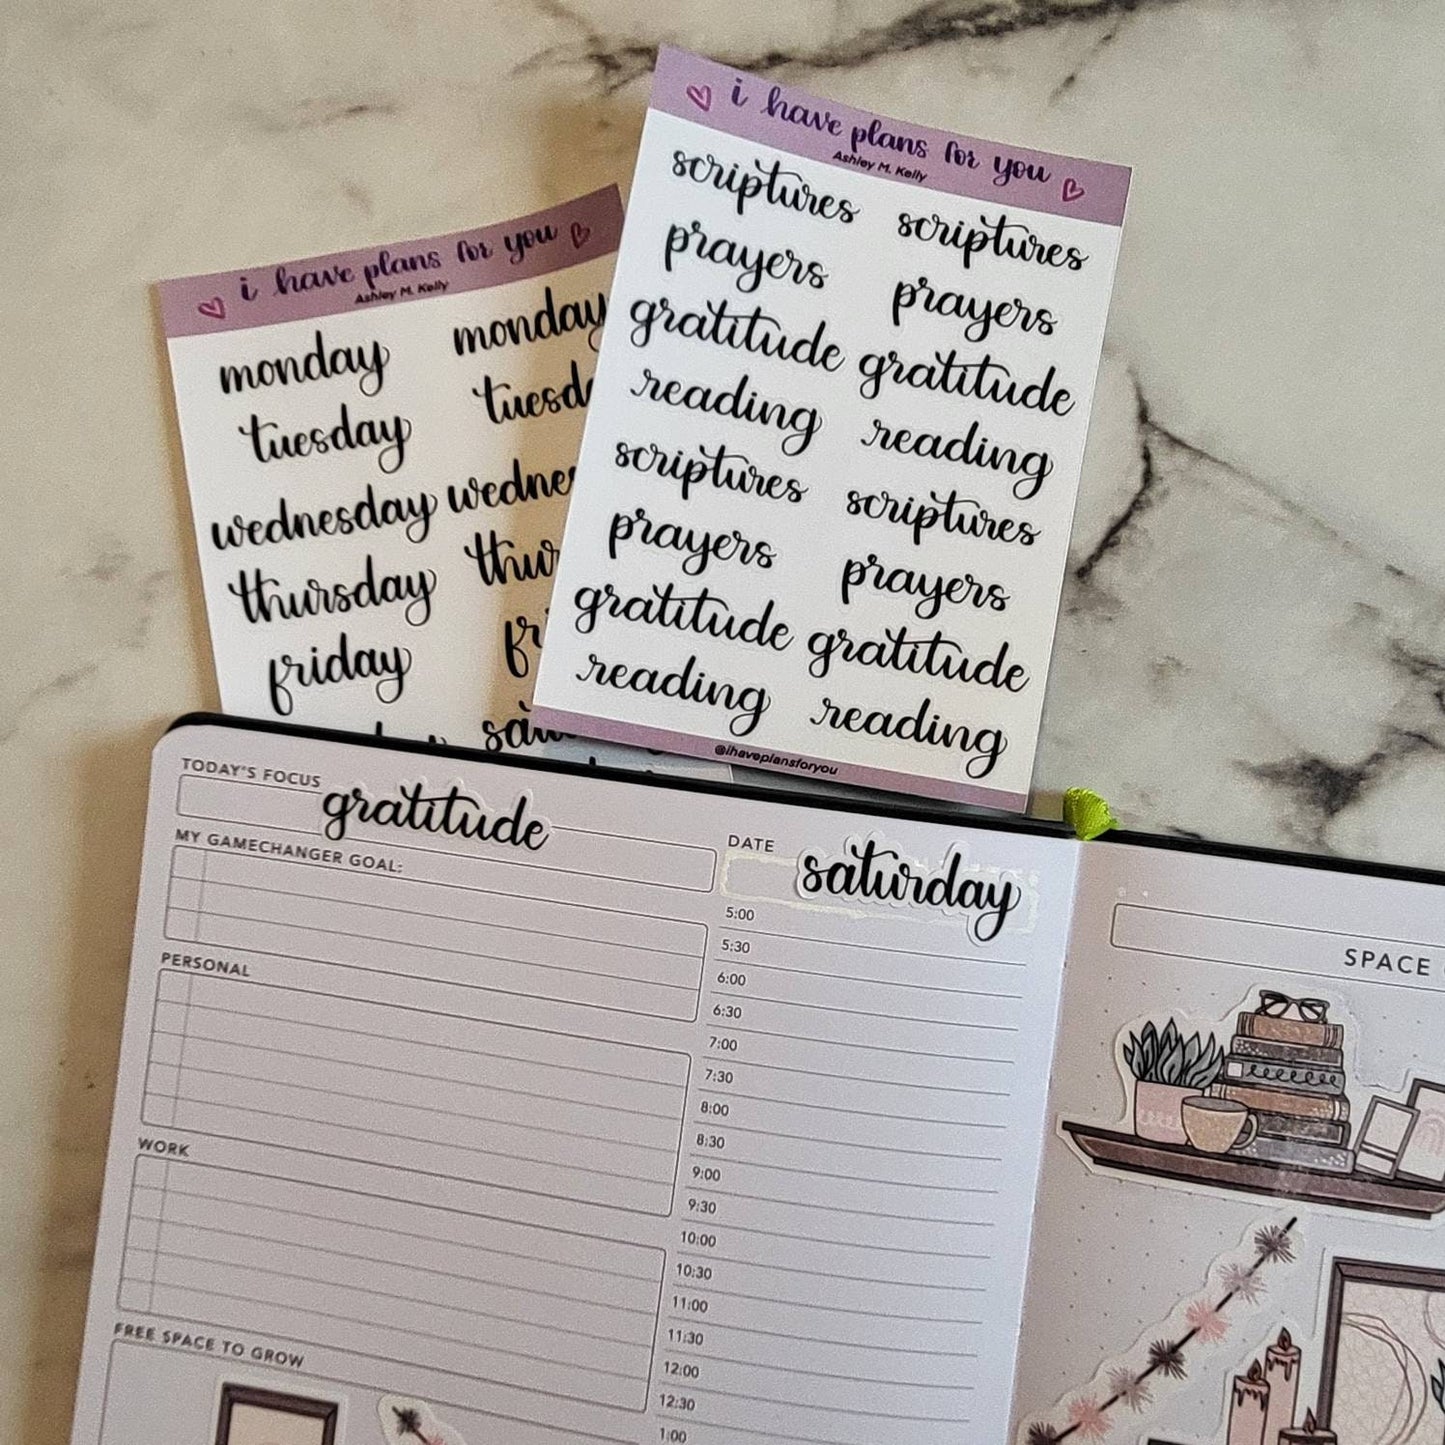 i have plans for you
Ashley M. Kelly
monday monday
tuesday
wednesday
thursday
friday
i have plans for you
Ashley M. Kelly
scriptures scriptures
prayers prayers
gratitude gratitude
reading reading
scriptures scriptures
prayers prayers
gratitude gratitude
reading reading
@ihaveplansforyou
TODAY'S FOCUS
gratitude
MY GAMECHANGER GOAL:
PERSONAL
WORK
FREE SPACE TO GROW
DATE
saturday
5:00
5:30
6:00
6:30
7:00
7:30
8:00
8:30
9:00
9:30
10:00
10:30
11:00
11:30
12:00
12:30
1:00
SPACE